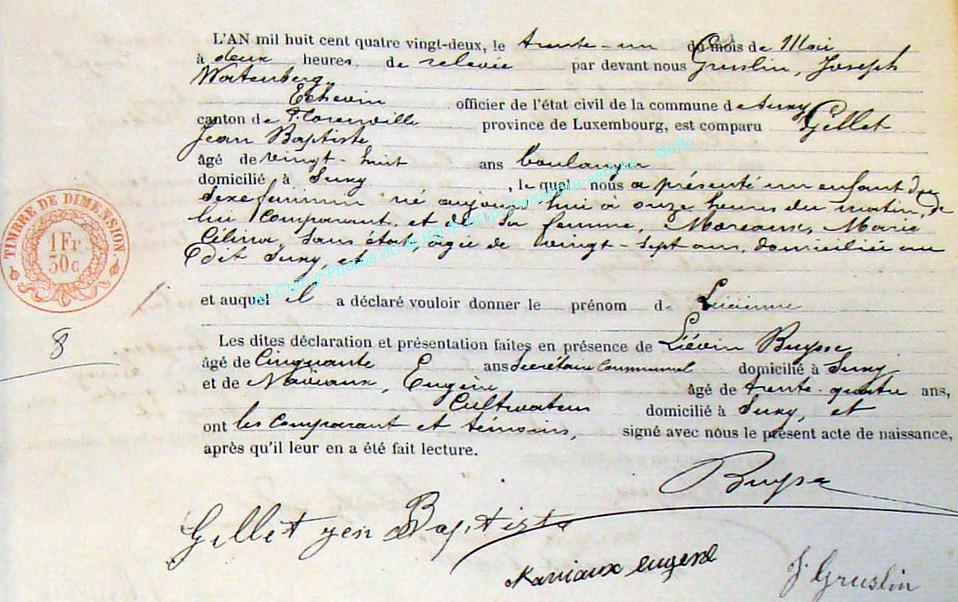 L'AN mil huit cent quatre vingt-deux, le trente-un du mois de Mai
à deux heures de relevée par devant nous Gruslin, Joseph
Watenberg,
Echevin officier de l'état civil de la commune de Suxy
canton de Florenville province de Luxembourg, est comparu Gillet
Jean Baptiste
âgé de vingt-huit ans boulanger
domicilié à Suxy, le quel nous a présenté un enfant du
Sexe féminin né aujourd'hui à onze heures du matin, de
lui comparant, et de Sa femme, Marie
Célina, Sans état, agée de vingt-Sept ans, domiciliée au
dit Suxy, et
et auquel il a déclaré vouloir donner le prénom de
Les dites déclaration et présentation faites en présence de Liévin Buysse
âgé de Cinquante ans Secrétaire Communal domicilié à Suxy
et de Maviaux, Eugène âgé de trente-quatre ans,
Cultivateur domicilié à Suxy, et
ont les Comparant et témoins, signé avec nous le présent acte de naissance,
après qu'il leur en a été fait lecture.
TIMBRE DE DIMENSION
1 Fr
30 c
8
Buysse
Gillet Baptiste
Maviaux eugene
J Gruslin